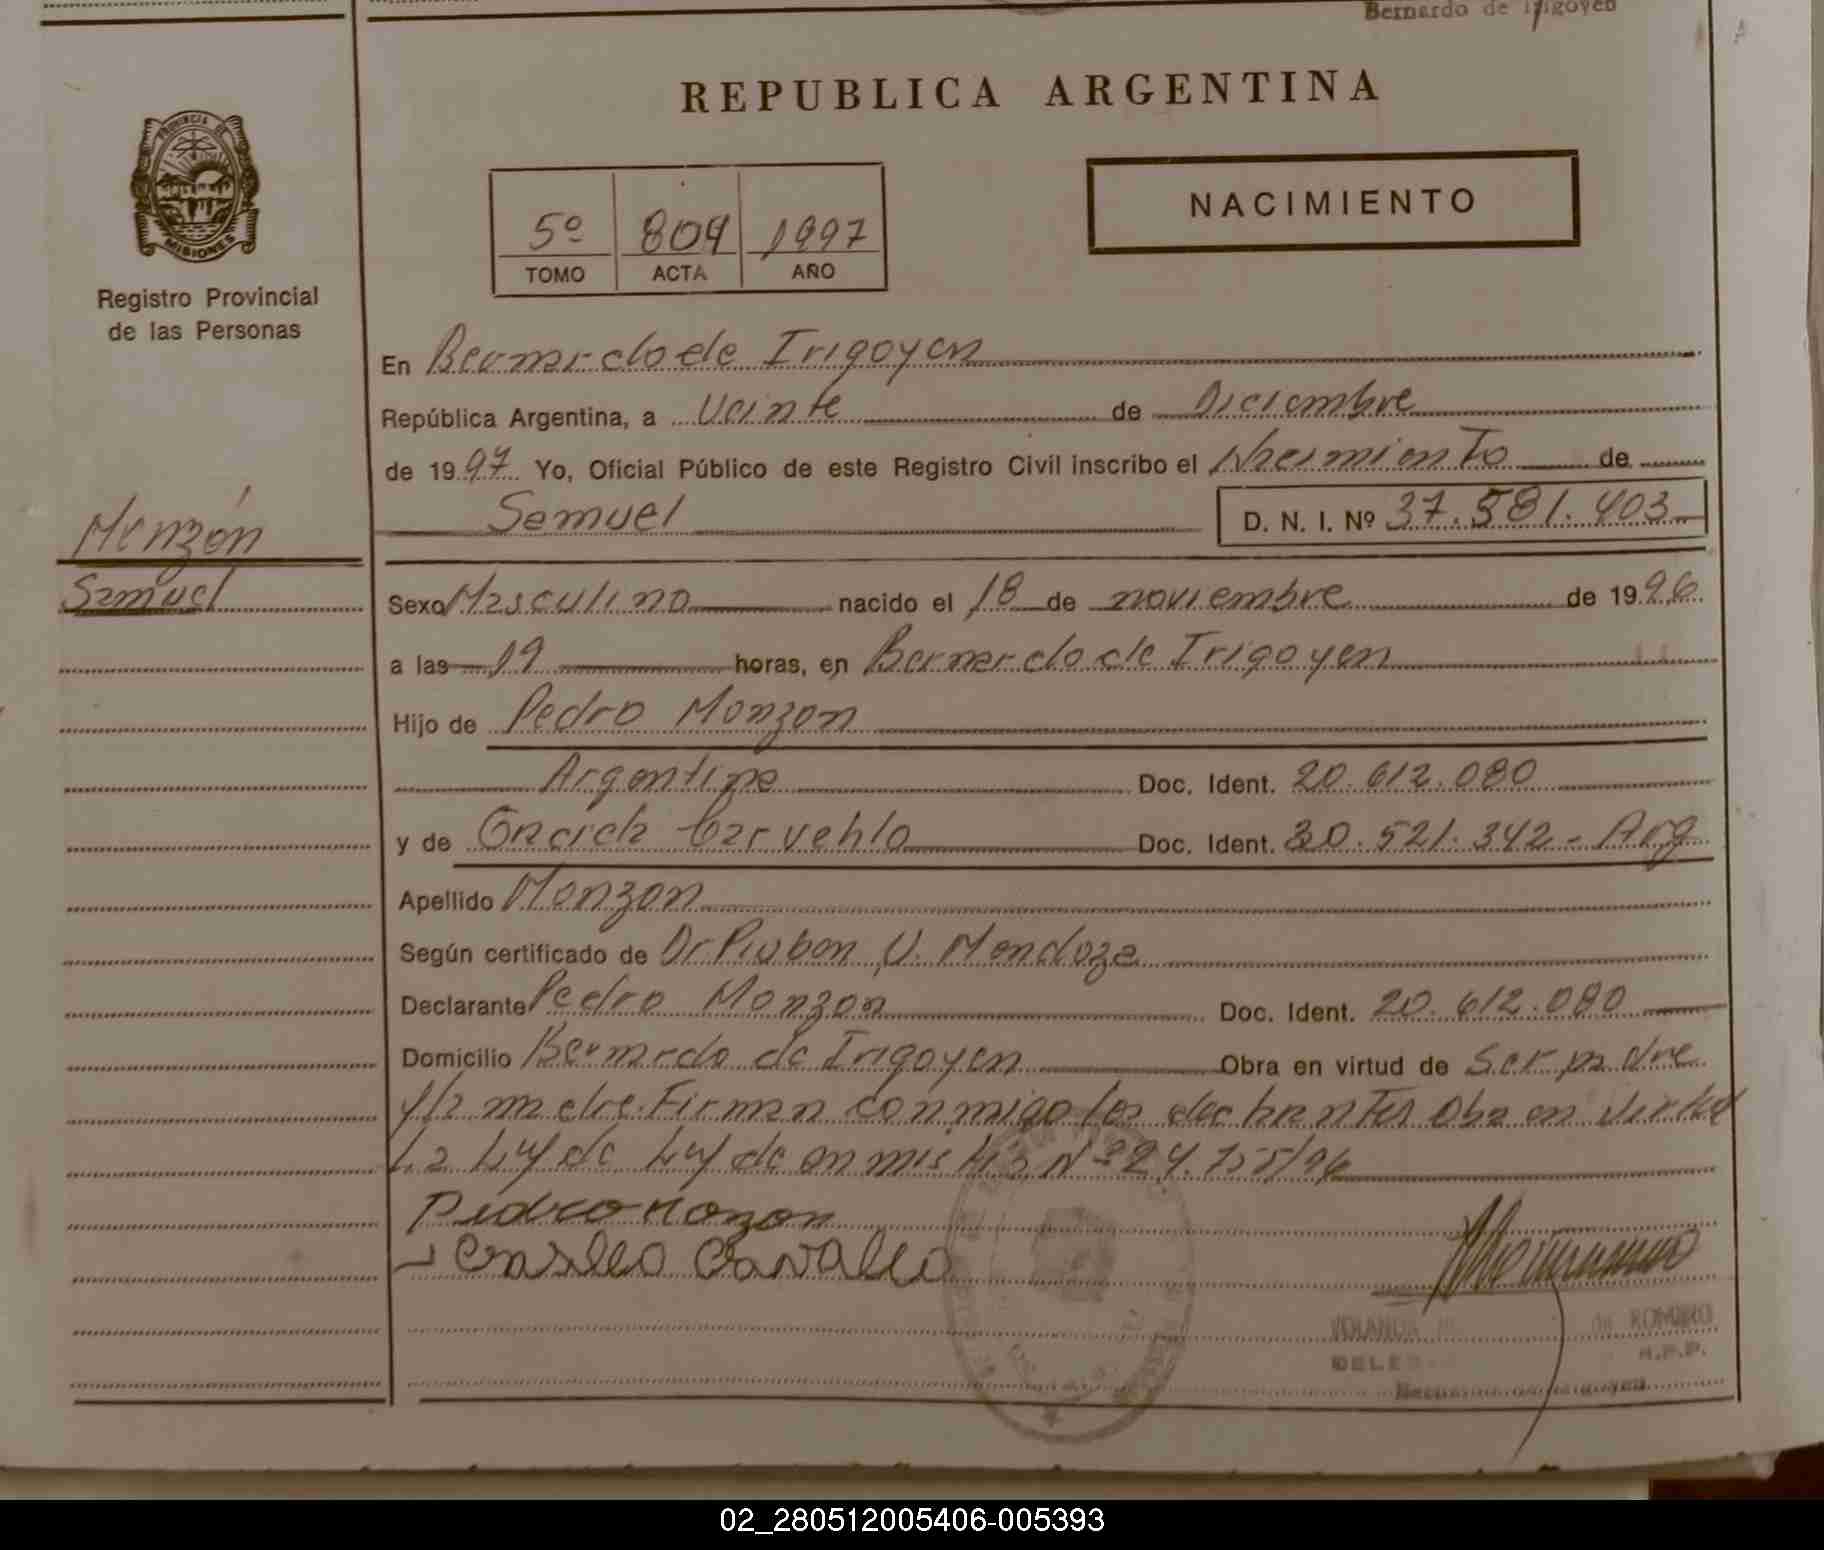 Bernardo de Irigoyen
REPUBLICA ARGENTINA
PROVINCIA DE
MISIONES
Registro Provincial
de las Personas
NACIMIENTO
5º 804 1997
TOMO ACTA AÑO
En Bernardo de Irigoyen
República Argentina, a Veinte de Diciembre
de 1997 Yo, Oficial Público de este Registro Civil inscribo el Nacimiento de
Samuel D. N. I. Nº 37.581.403
Monzón
Samuel
Sexo Masculino nacido el 18 de noviembre de 1996
a las 19 horas, en Bernardo de Irigoyen
Hijo de Pedro Monzon
Argentina Doc. Ident. 20.612.080
y de Carvahlo Doc. Ident. 30.521.342 - Arg
Apellido Monzon
Según certificado de Dr Ruben V. Mendoza
Declarante Pedro Monzon Doc. Ident. 20.612.080
Domicilio Bernardo de Irigoyen Obra en virtud de Ser padre
y la madre. Firman conmigo los en virtud
La Ley de Ley de Nº 24.755/96
Pedro Monzon
Cavalho
YOLANDA de ROMERO
R.P.P.
Bernardo de Irigoyen
02_280512005406-005393